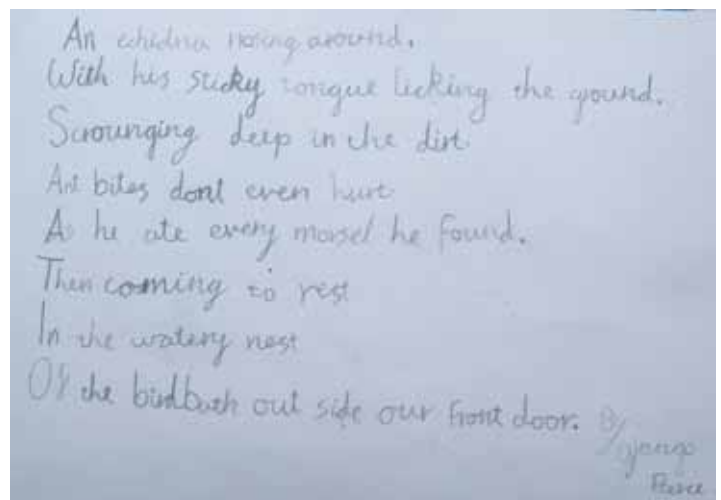 An echidna nosing around.
With his sticky tongue licking the ground.
Scrounging deep in the dirt
Ant bites dont even hurt
As he ate every morsel he found.
Then coming to rest
In the watery nest
Of the birdbath out side our front door. By
Pearce